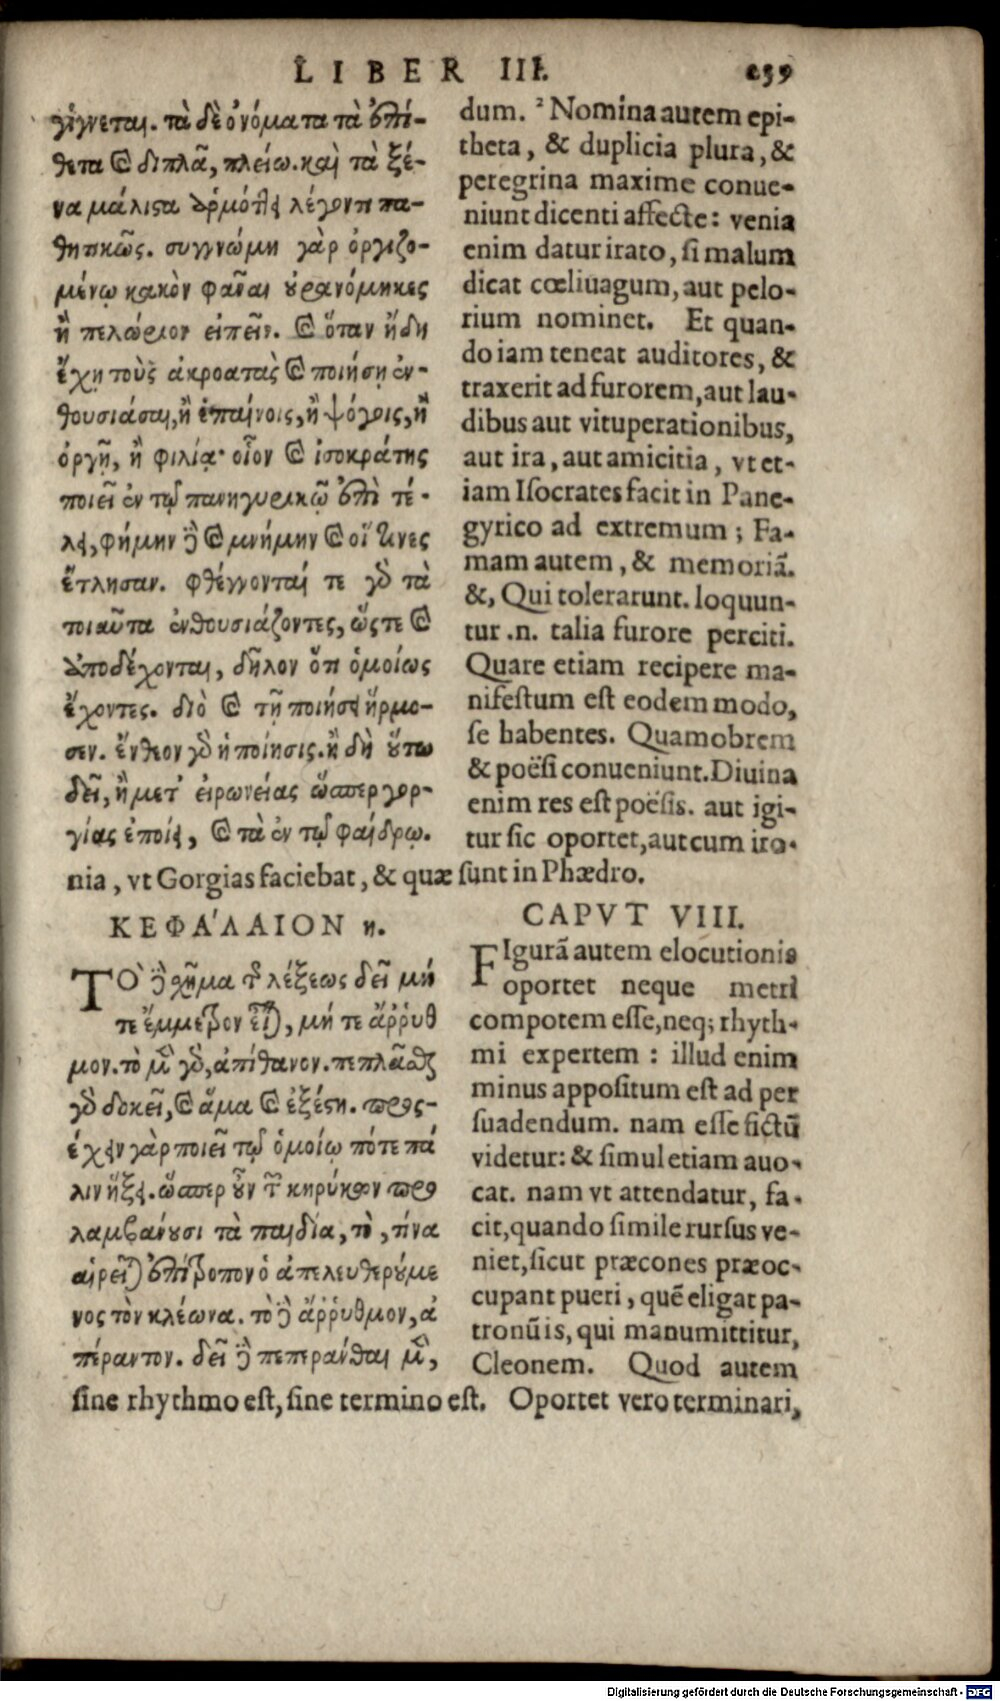 LIBER III. 239
γίγνεται. τὰ δὲ ὀνόματα τὰ ἐπί-
θετα καὶ διπλᾶ, πλείω. καὶ τὰ ξέ-
να μάλιϛα ἁρμόττει λέγοντι πα-
θητικῶς. συγγνώμη γὰρ ὀργιζο-
μένῳ κακὸν φᾶναι οὐρανόμηκες
ἢ πελώριον εἰπεῖν. καὶ ὅταν ἤδη
ἔχῃ τοὺς ἀκροατὰς καὶ ποιήσῃ ἐν-
θουσιάσαι, ἢ ἐπαίνοις, ἢ ψόγοις, ἢ
ὀργῇ, ἢ φιλίᾳ· οἷον καὶ ἰσοκράτης
ποιεῖ ἐν τῷ πανηγυρικῷ ἐπὶ τέ-
λει, φήμην δὲ καὶ μνήμην καὶ οἵ τινες
ἔτλησαν. φθέγγονταί τε γὸ τὰ
τοιαῦτα ἐνθουσιάζοντες, ὥςτε καὶ
ἀποδέχονται, δῆλον ὅτι ὁμοίως
ἔχοντες. διὸ καὶ τῇ ποιήσει ἥρμο-
σεν. ἔνθεον γὸ ἡ ποίησις. ἢ δὴ οὕτω
δεῖ, ἢ μετ' εἰρωνείας ὥσπερ γορ-
γίας ἐποίει, καὶ τὰ ἐν τῷ φαίδρῳ.
dum. ² Nomina autem epi-
theta, & duplicia plura, &
peregrina maxime conue-
niunt dicenti affecte: venia
enim datur irato, si malum
dicat cœliuagum, aut pelo-
rium nominet. Et quan-
do iam teneat auditores, &
traxerit ad furorem, aut lau-
dibus aut vituperationibus,
aut ira, aut amicitia, vt et-
iam Isocrates facit in Pane-
gyrico ad extremum; Fa-
mam autem, & memoriã.
&, Qui tolerarunt. loquun-
tur .n. talia furore perciti.
Quare etiam recipere ma-
nifestum est eodem modo,
se habentes. Quamobrem
& poësi conueniunt. Diuina
enim res est poësis. aut igi-
tur sic oportet, aut cum iro-
nia, vt Gorgias faciebat, & quæ sunt in Phædro.
ΚΕΦΑ'ΛΑΙΟΝ η.
ΤΟ δὲ σχῆμα τῆς λέξεως δεῖ μή
τε ἔμμετρον εἶναι, μή τε ἄῤῥυθ
μον. τὸ μὲν γὸ, ἀπίθανον. πεπλᾶσθαι
γὸ δοκεῖ, καὶ ἅμα καὶ ἐξίϛησι. προς-
έχειν γὰρ ποιεῖ τῷ ὁμοίῳ πότε πά
λιν ἥξει. ὥσπερ οὖν τῶν κηρύκων προ
λαμβάνουσι τὰ παιδία, τὸ, τίνα
αἱρεῖται ἐπίτροπον ὁ ἀπελευθερούμε
νος τὸν κλέωνα. τὸ δὲ ἄῤῥυθμον, ἀ
πέραντον. δεῖ δὲ πεπεράνθαι μὲν,
CAPVT VIII.
FIgurã autem elocutionis
oportet neque metri
compotem esse, neq; rhyth-
mi expertem: illud enim
minus appositum est ad per
suadendum. nam esse fictũ
videtur: & simul etiam auo-
cat. nam vt attendatur, fa-
cit, quando simile rursus ve-
niet, sicut præcones præoc-
cupant pueri, quẽ eligat pa-
tronũ is, qui manumittitur,
Cleonem. Quod autem
sine rhythmo est, sine termino est. Oportet vero terminari,
Digitalisierung gefördert durch die Deutsche Forschungsgemeinschaft - DFG